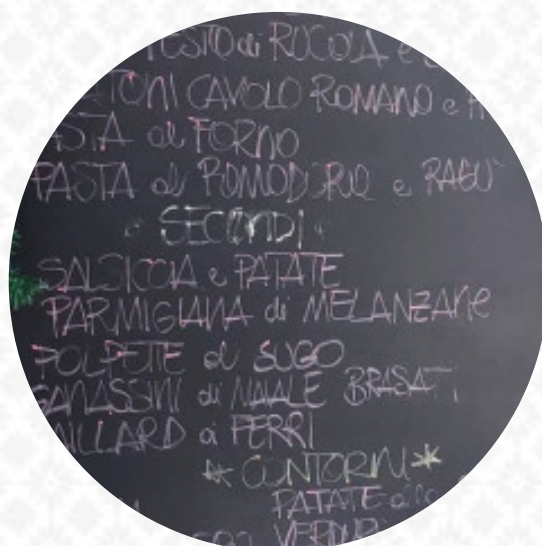 PESTO di RUCOLA e
CAVOLO ROMANO e
al FORNO
PASTA al POMODORO e RAGU'
SECONDI
SALSICCIA e PATATE
PARMIGIANA di MELANZANE
POLPETTE al SUGO
GANASSINI di MAIALE BRASATI
AILLARD ai FERRI
* CONTORNI *
PATATE